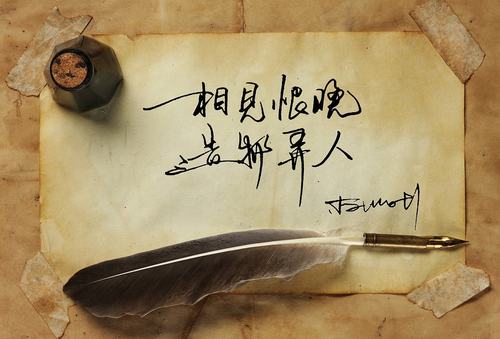 相見恨晚
造物弄人